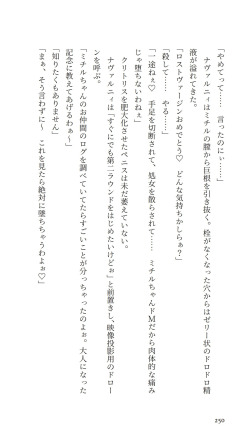 「やめてって……　言ったのにぃ……」
　ナヴァルニィはミチルの膣から巨根を引き抜く。栓がなくなった穴からはゼリー状のドロドロ精
液が溢れてきた。
「ロストヴァージンおめでとう♡　どんな気持ちかしらぁ？」
「殺して……　やる……」
「一途ねぇ♡　手足を切断されて、処女を散らされて……　ミチルちゃんドMだから肉体的な痛み
じゃ堕ちないわねぇ」
　クリトリスを肥大化させたペニスは未だ萎えていない。
　ナヴァルニィは「すぐにでも第二ラウンドをはじめたいけどぉ」と前置きし、映像投影用のドロー
ンを呼ぶ。
「ミチルちゃんのお仲間のログを調べていてたらすごいことが分っちゃったのよぉ。大人になった
記念に教えてあげるわぁ〜」
「知りたくもありません」
「まぁ、そう言わずに〜　これを見たら絶対に堕ちちゃうわよぉ♡」
250